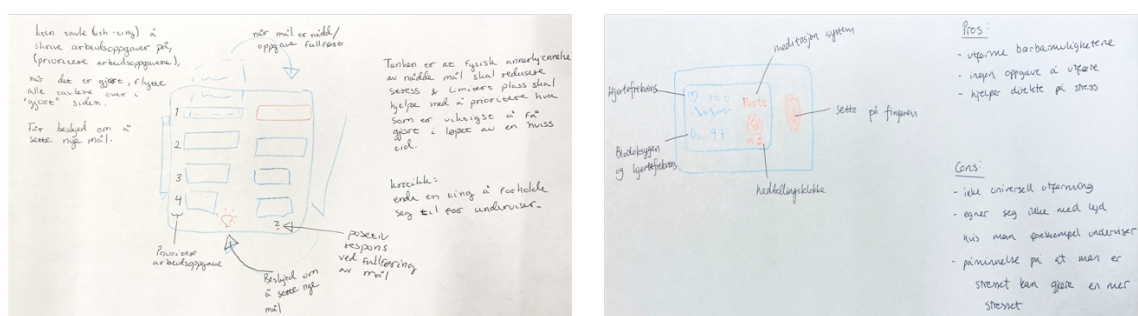 liten tavle (ish-ting) å
skrive arbeidsoppgaver på,
(prioritere arbeidsoppgavene),
når det er gjort, flytte
alle tavlene over i
"gjort" siden.
Får beskjed om å
sette nye mål.
når mål er nådd/
oppgave fullført
1
2
3
4
Prioritere
arbeidsoppgave
Beskjed om
å sette nye
mål
?
posetiv
respons
ved fullføring
av mål
Tanken er at fysisk annerkjennelse
av nådde mål skal redusere
stress & limitere plass skal
hjelpe med å prioritere hva
som er viktigst å få
gjort i løpet av en hviss
tid.
kritikk:
enda en ting å forholde
seg til for underviser.
meditasjon system
Hjertefrekvens
Puste
97
Blodoksygen
og hjertefrekvens
nedtellingsklokke
sette på fingeren
Pros:
- utforme bærbarmulighetene
- ingen oppgave å utføre
- hjelper direkte på stress
Cons:
- ikke universell utforming
- egner seg ikke med lyd
hvis man foreksempel underviser
- påminnelse på at man er
stresset kan gjøre en mer
stresset